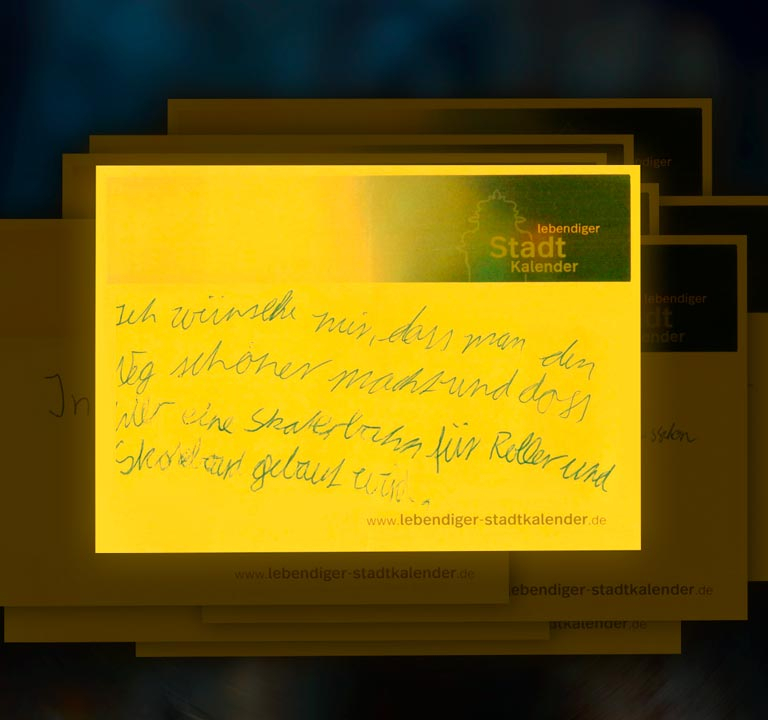 lebendiger
Stadt
Kalender
Ich wünsche mir, dass man den
Weg schöner macht und dass
hier eine Skaterbahn für Roller und
Skateboart gebaut wird.
www.lebendiger-stadtkalender.de
In
www.lebendiger-stadtkalender.de
lebendiger
lebendiger-stadtkalender.de
stadtkalender.de